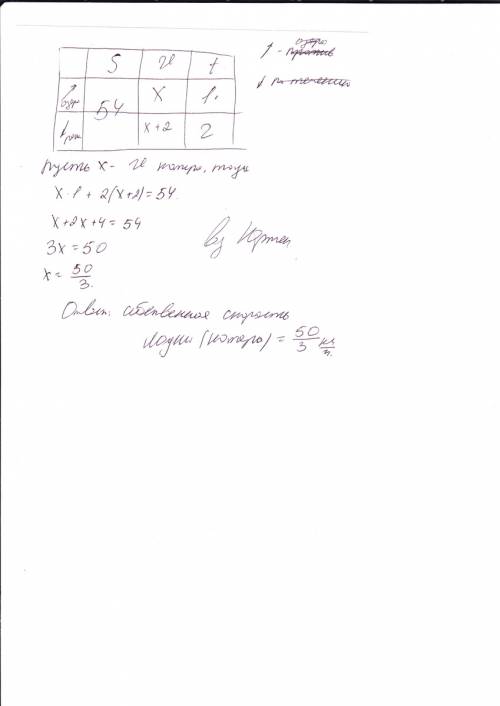 S v t
↑ озеро 54 x 1.
↓ реч x+2 2
↑ - озеро против
↓ по течению
Пусть x - v катера, тогда
x·1 + 2(x+2)=54.
x+2x+4=54
3x=50
x= 50/3.
by
Ответ: собственная скорость
лодки (катера) = 50/3 км/ч.